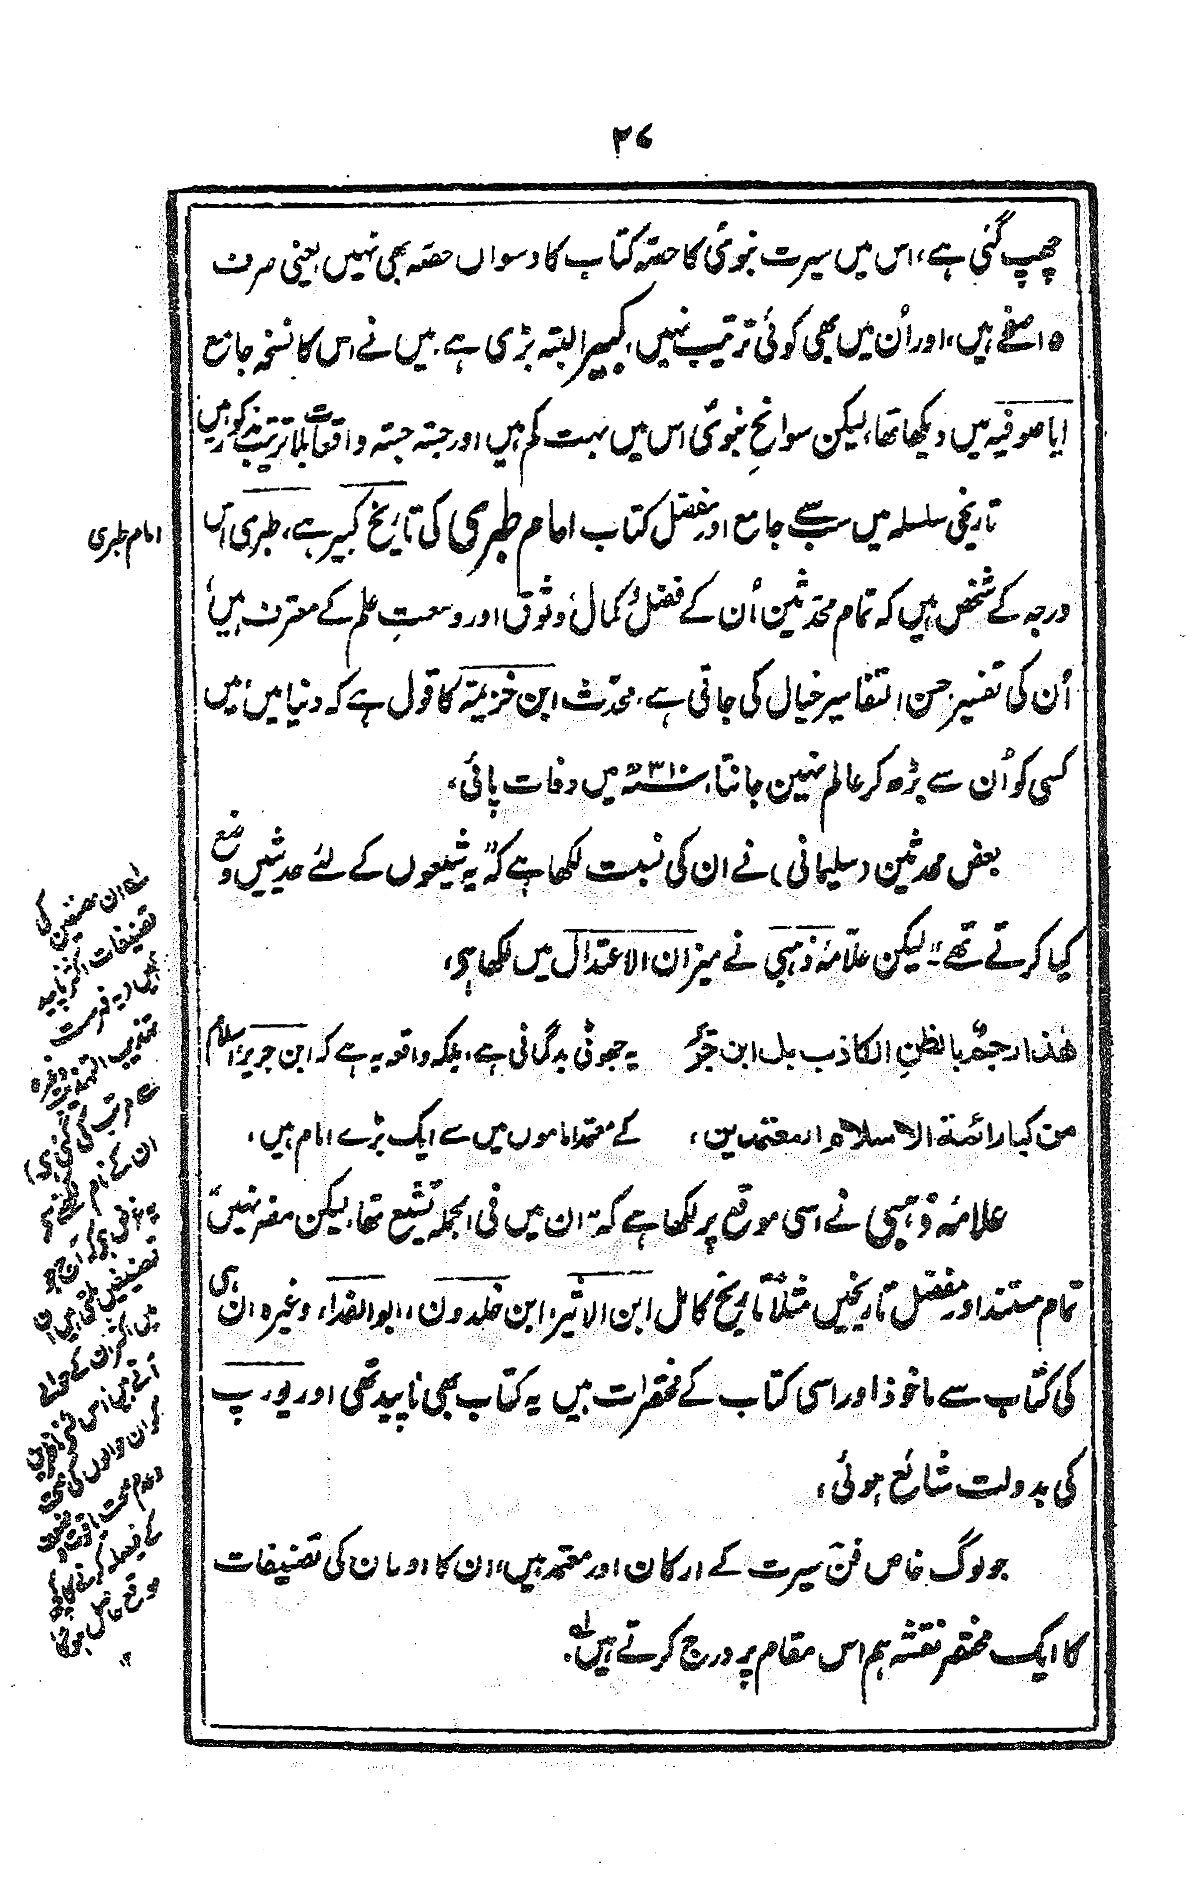 ۲۷
چھپ گئی ہے، اس میں سیرت نبویؐ کا حصّہ کتاب کا دسواں حصّہ بھی نہیں، یعنی صرف
۱۵ صفحے ہیں، اور اُن میں بھی کوئی ترتیب نہیں، کبیر البتہ بڑی ہے، میں نے اس کا نسخہ جامع
ایاصوفیہ میں دیکھا تھا، لیکن سوانحِ نبویؐ اس میں بہت کم ہیں اور جستہ جستہ واقعات بلا ترتیب مذکور ہیں
تاریخی سلسلہ میں سب سے جامع اور مفصّل کتاب امام طبری کی تاریخ کبیر ہے، طبری اس
امام طبری
درجہ کے شخص ہیں کہ تمام محدّثین اُن کے فضل و کمال، وثوق اور وسعتِ علم کے معترف ہیں،
اُن کی تفسیر حسن التفاسیر خیال کی جاتی ہے، محدّث ابن خزیمۃ کا قول ہے کہ دنیا میں میں
کسی کو اُن سے بڑھ کر عالم نہین جانتا، سنہ ۳۱۰ھ میں وفات پائی،
بعض محدثین (سلیمانی) نے ان کی نسبت لکھا ہے کہ "یہ شیعوں کے لئے حدیثیں وضع
کیا کرتے تھے"۔ لیکن علّامہ ذہبی نے میزان الاعتدال میں لکھا ہی،
ھٰذا رجمٌ بالظنِ الکاذب بل ابن جرَیر یہ جھوٹی بدگمانی ہے، بلکہ واقعہ یہ ہے کہ ابن جریر، اسلام
من کبار ائمۃ الاسلام المعتمدین، کے معتمد اماموں میں سے ایک بڑے امام ہیں،
علامۂ ذہبی نے اسی موقع پر لکھا ہے کہ "ان میں فی الجملہ تشیّع تھا، لیکن مضر نہیں"
تمام مستند اور مفصّل تاریخیں مثلاً تاریخ کامل ابن الاثیر، ابن خلدون، ابو الفداء وغیرہ ان ہی
کی کتاب سے ماخوذ اور اسی کتاب کے مختصرات ہیں یہ کتاب بھی ناپید تھی اور یورپ
کی بدولت شائع ہوئی،
جو لوگ خاص فن سیرت کے ارکان اور معتمد ہیں، ان کا اور ان کی تصنیفات
کا ایک مختصر نقشہ ہم اس مقام پر درج کرتے ہیں لہ۔
لہ ان مصنفین کی
تصنیفات اکثر ناپید
ہیں، یہ فہرست
تہذیب التہذیب وغیرہ
سے مرتب کی گئی ہی،
ان کے نام